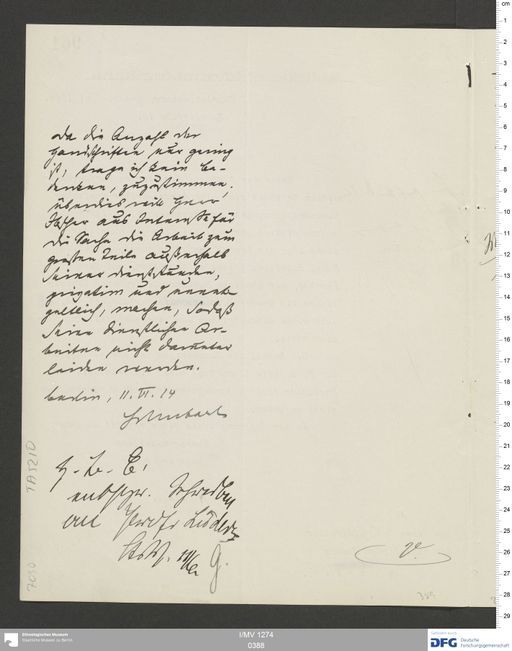 Da die Anzahl der
Handschriften nur gering
ist, trage ich kein Be-
denken, zuzustimmen,
überdies will Herr
aus Interesse für
die Sache die Arbeit zum
großen Teile außerhalb
seiner Dienststunden,
privatim und unent-
geltlich, machen, sodaß
seine dienstlichen Ar-
beiten nicht darunter
leiden werden.
Berlin, 11. VI. 14
Schubart
z. d. A.
entspr. Schreiben
an Prof. Lüders
G.
V.
389
TA521D
7030
Ethnologisches Museum
Staatliche Museen zu Berlin
I/MV 1274
0388
DFG Deutsche
Forschungsgemeinschaft
cm
1
2
3
4
5
6
7
8
9
10
11
12
13
14
15
16
17
18
19
20
21
22
23
24
25
26
27
28
29